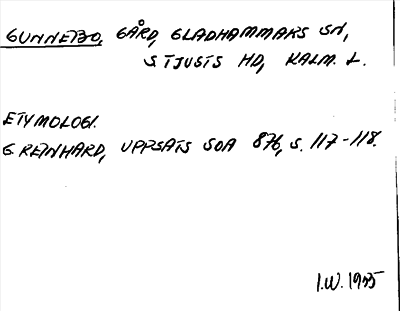 GUNNEBO, GÅRD, GLADHAMMARS SN,
S. TJUSTS HD, KALM. L.
ETYMOLOGI.
G. REINHARD, UPPSATS SOA 876, S. 117-118.
I.W. 1955